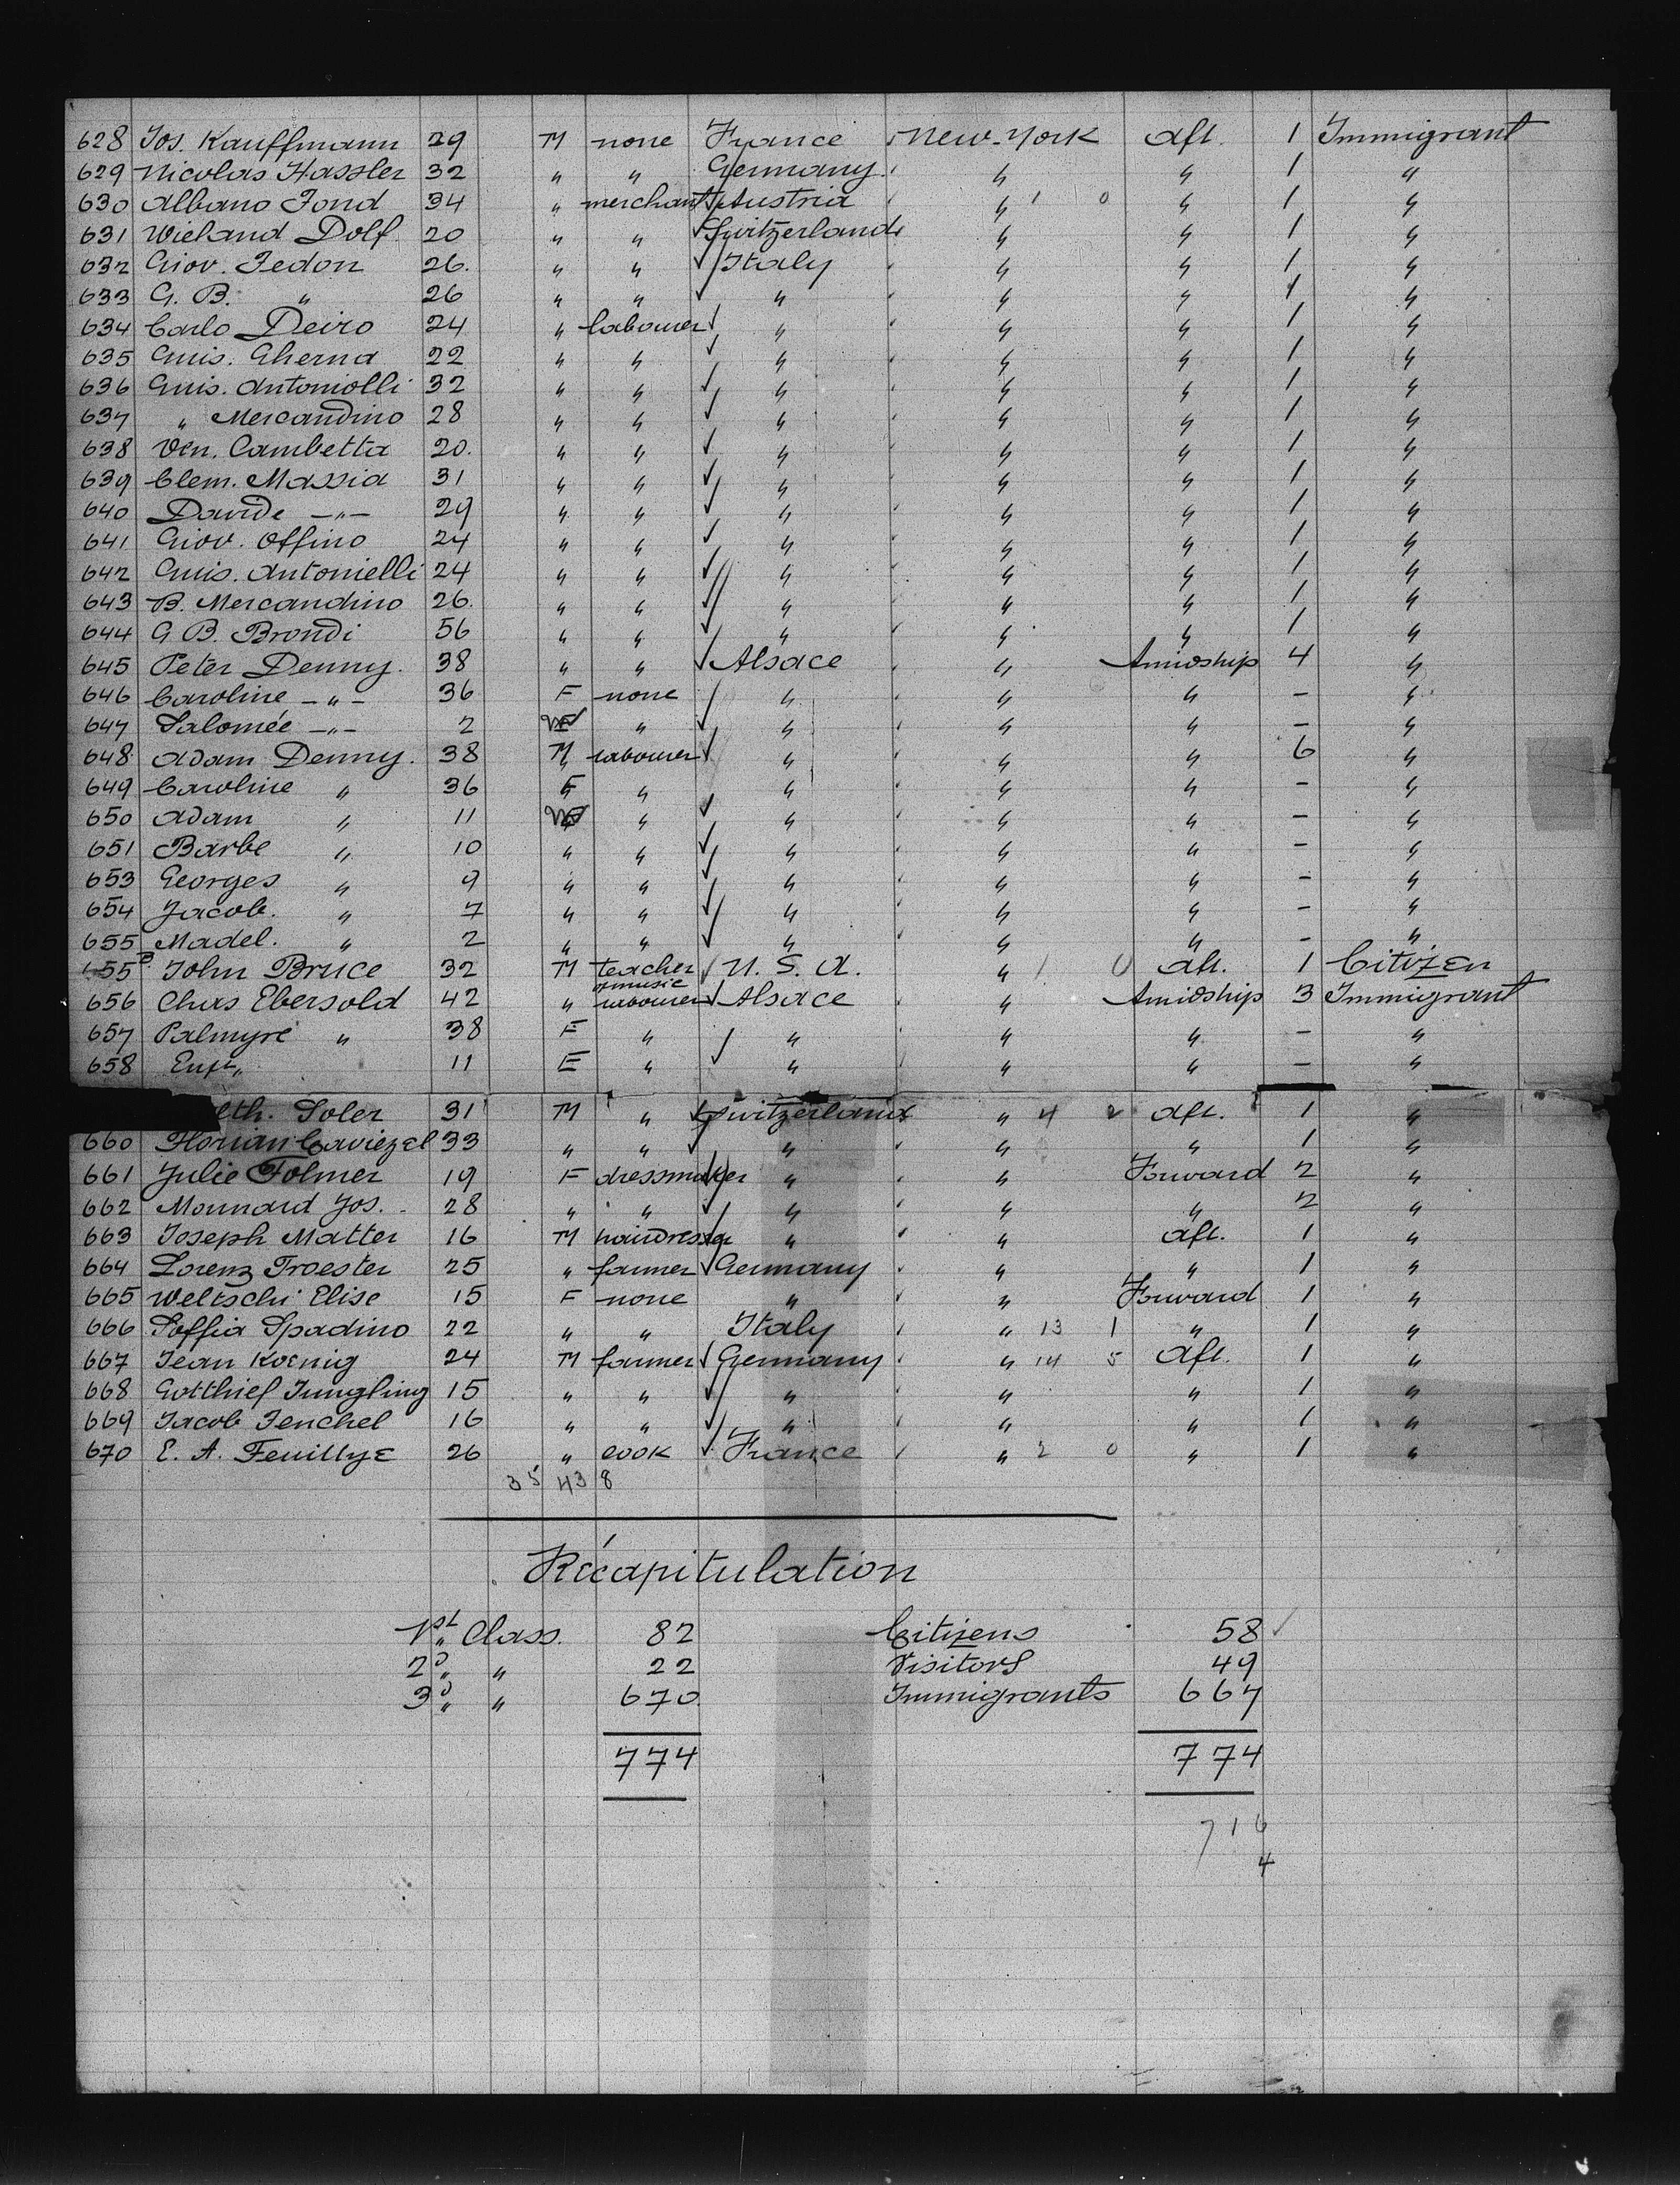 628 Jos. Kauffmann 29 M none France New-York aft. 1 Immigrant
629 Nicolas Hassler 32 " " Germany " " 1 "
630 Albano Fond 34 " merchant Austria " 1 0 " 1 "
631 Wieland Dolf 20 " " Switzerland " " 1 "
632 Giov. Fedon 26. " " Italy " " 1 "
633 G. B. " 26 " " " " " 1 "
634 Carlo Deiro 24 " labourer " " " 1 "
635 Guis. Gherna 22 " " " " " 1 "
636 Guis. Antoniolli 32 " " " " " 1 "
637 " Mercandino 28 " " " " " 1 "
638 Ven. Cambetta 20. " " " " " 1 "
639 Clem. Massia 31 " " " " " 1 "
640 Davide -"- 29 " " " " " 1 "
641 Giov. Offino 24 " " " " " 1 "
642 Guis. Antonielli 24 " " " " " 1 "
643 B. Mercandino 26. " " " " " 1 "
644 G B. Brondi 56 " " " " " 1 "
645 Peter Denny. 38 " " Alsace " Amidship 4 "
646 Caroline -"- 36 F none " " " - "
647 Salomée -"- 2 " " " " - "
648 Adam Denny. 38 M labourer " " " 6 "
649 Caroline " 36 F " " " " - "
650 Adam " 11 " " " " - "
651 Barbe " 10 " " " " " - "
653 Georges " 9 " " " " " - "
654 Jacob. " 7 " " " " " - "
655 Madel. " 2 " " " " " - "
655 B. John Bruce 32 M teacher of music U. S. A. " 1 0 aft. 1 Citizen
656 Chas Ebersold 42 " labourer Alsace " Amidship 3 Immigrant
657 Palmyre " 38 F " " " " - "
658 " 11 E " " " " - "
eth. Soler 31 M " Switzerland " 4 2 aft. 1 "
660 Florian Caviezel 33 " " " " " 1 "
661 Julie Folmer 19 F dressmaker " " Forward 2 "
662 Monnard Jos. 28 " " " " " 2 "
663 Joseph Matter 16 M hairdresser " " aft. 1 "
664 Lorenz Troester 25 " farmer Germany " " 1 "
665 Weltschi Elise 15 F none " " Forward 1 "
666 Soffia Spadino 22 " " Italy " 13 1 " 1 "
667 Jean Koenig 24 M farmer Germany " 14 5 Aft. 1 "
668 Gotthief Jungling 15 " " " " " 1 "
669 Jacob Fenchel 16 " " " " " 1 "
670 E. A. Feuillye 26 " cook France " 2 0 " 1 "
35 43 8
Récapitulation
1st Class. 82 Citizens 58
2d " 22 Visitors 49
3d " 670 Immigrants 667
774 774
716
4